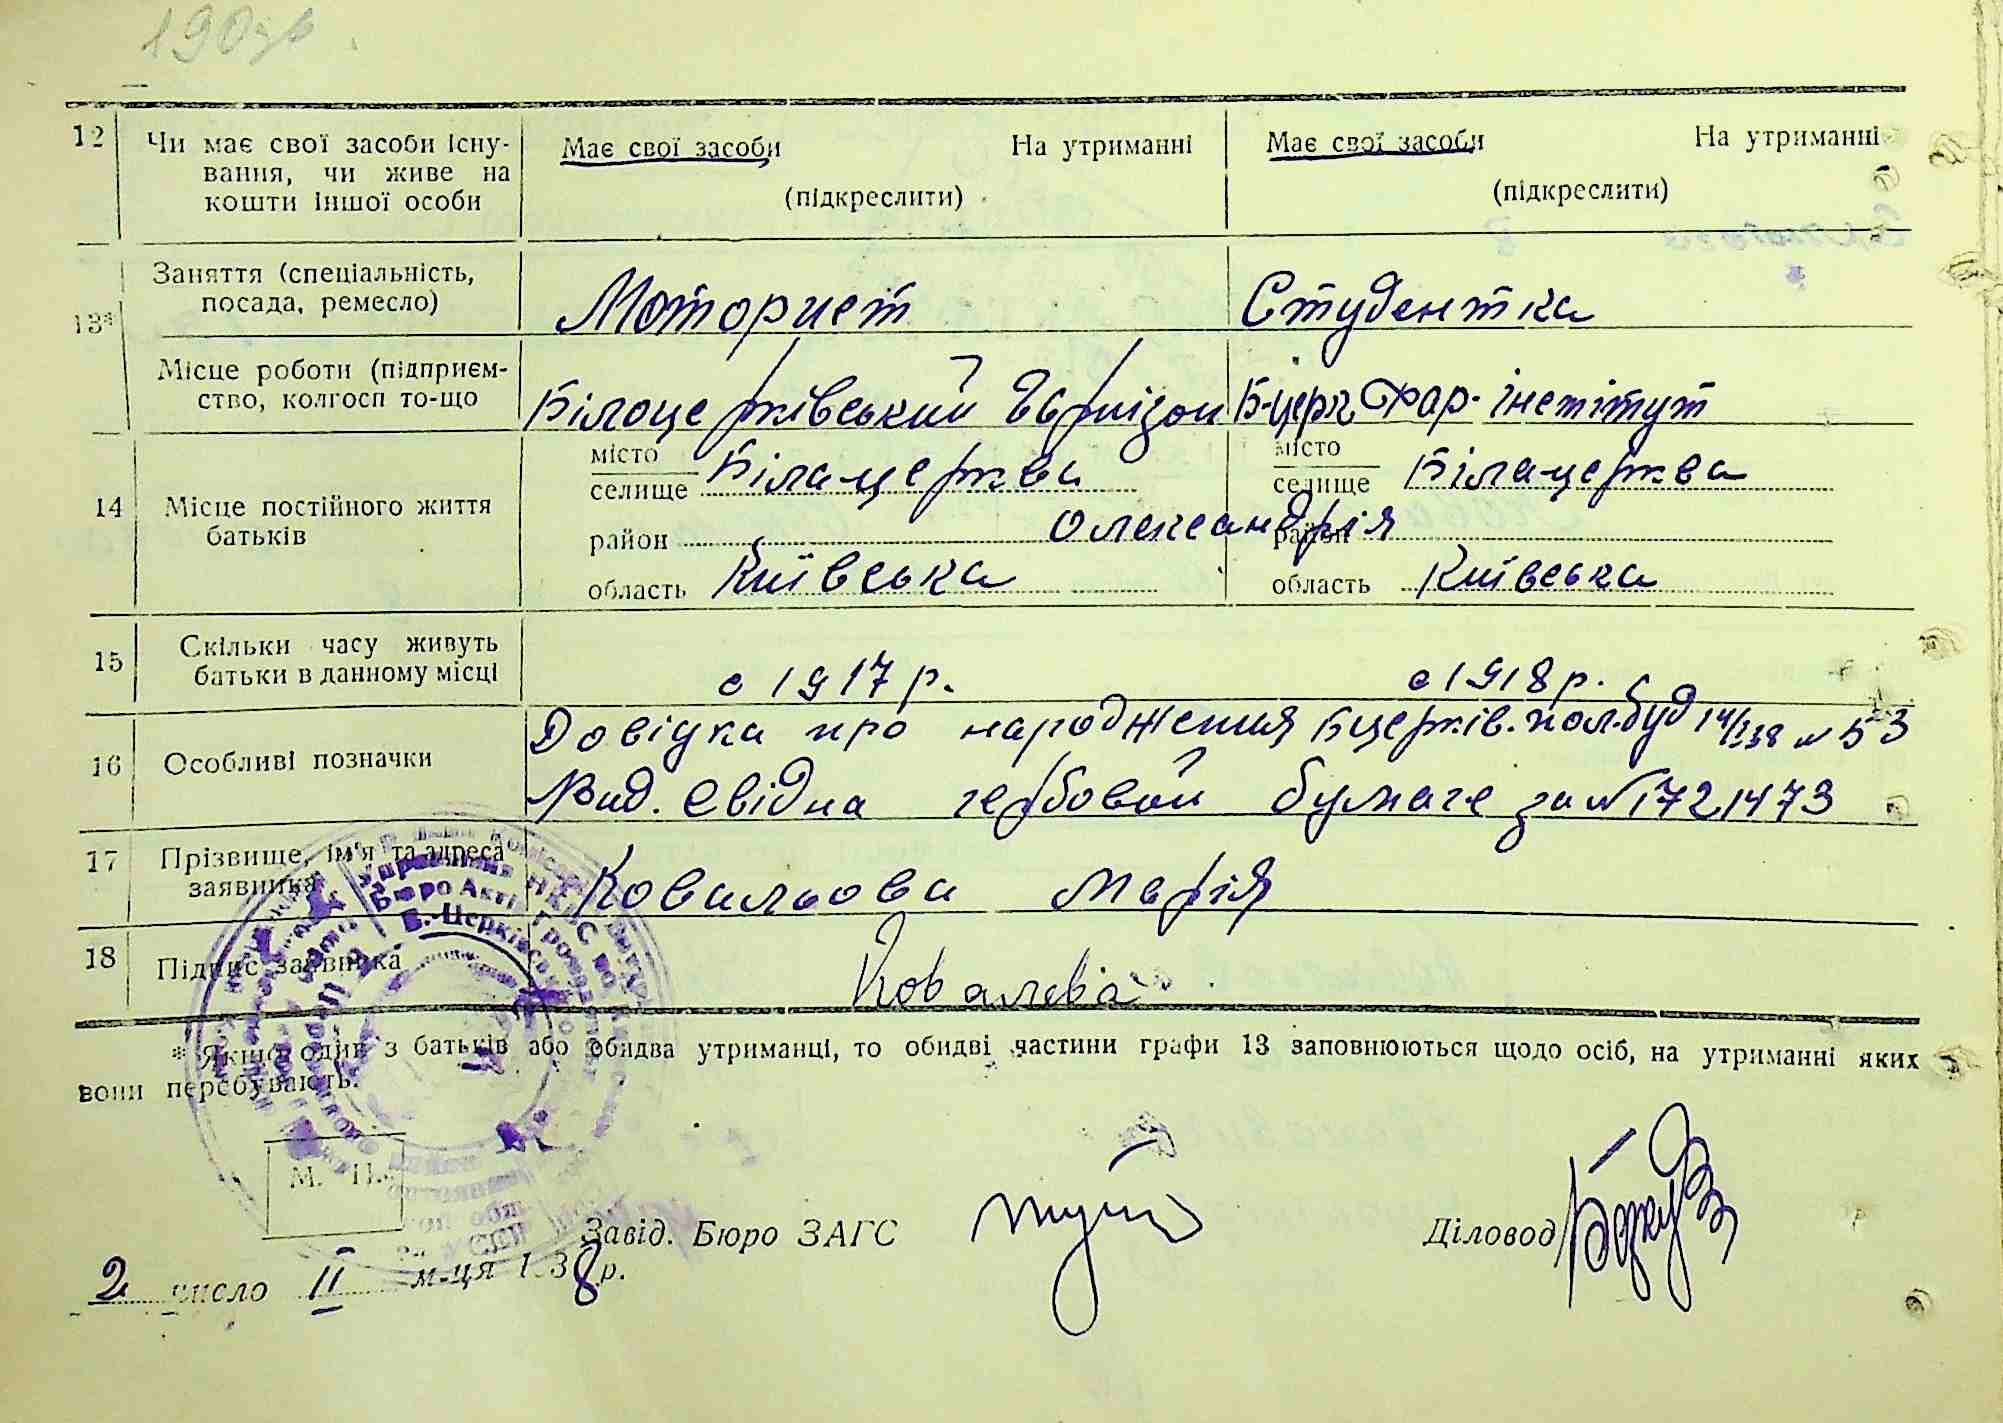 12 Чи має свої засоби існу-
вання, чи живе на
кошти іншої особи
Має свої засоби На утриманні
(підкреслити)
Має свої засоби На утриманні
(підкреслити)
13*
Заняття (спеціальність,
посада, ремесло)
Моторист
Студентка
Місце роботи (підприєм-
ство, колгосп то-що
Білоцерківський Гарнізон
Б-церк інститут
14 Місце постійного життя
батьків
місто
селище Білацерква
район Олександрія
область Київська
місто
селище Білацерква
район
область Київська
15 Скільки часу живуть
батьки в данному місці
с 1917 р.
с 1918 р.
16 Особливі позначки
Довідка про народження Бцерків. пол.буд 14/I 38 № 53
Вид. свідна гербовой бумаге за № 1721473
17 Прізвище, ім'я та адреса
заявника
Ковальова Марія
18 Підпис заявника
Ковалева
* Якщо один з батьків або обидва утриманці, то обидві частини графи 13 заповнюються щодо осіб, на утриманні яких
вони перебувають.
М. П.
Завід. Бюро ЗАГС
Діловод
2 число II м-ця 1938 р.